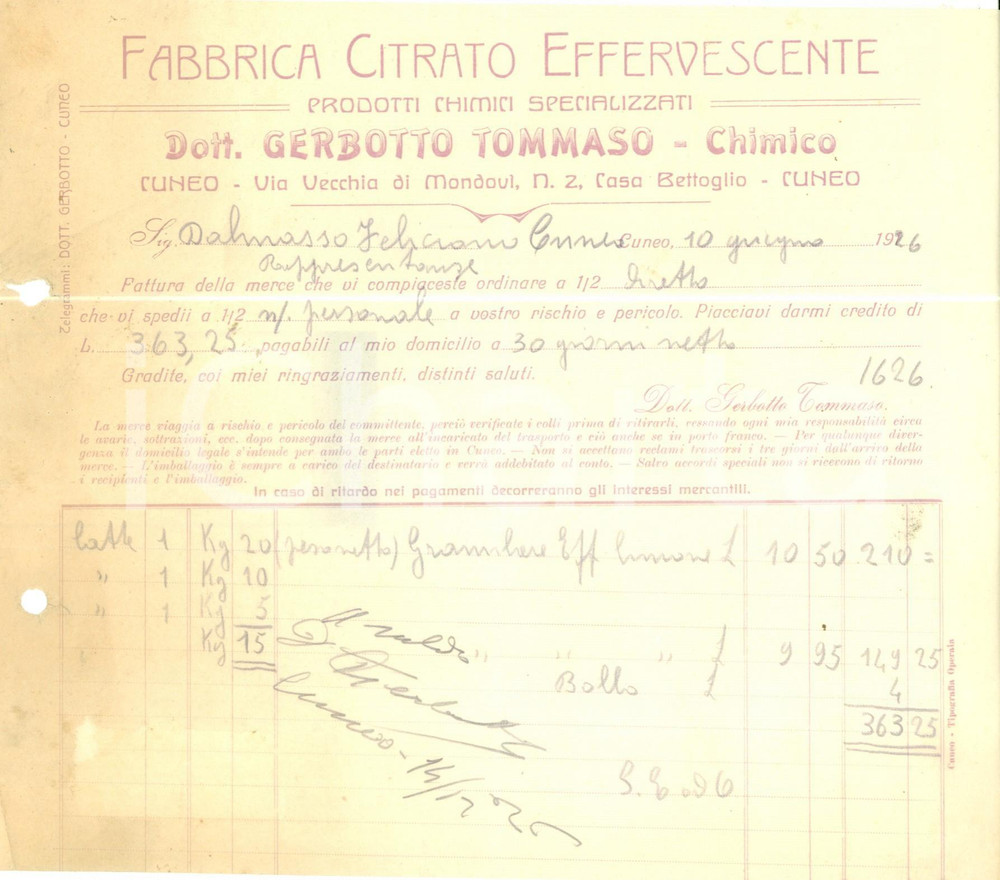 FABBRICA CITRATO EFFERVESCENTE
PRODOTTI CHIMICI SPECIALIZZATI
Dott. GERBOTTO TOMMASO - Chimico
CUNEO - Via Vecchia di Mondovì, N. 2, Casa Bettoglio - CUNEO
Telegrammi: DOTT. GERBOTTO - CUNEO
Sig. Dalmasso Feliciano Cuneo Cuneo, 10 giugno 1926
Rappresentanze
Fattura della merce che vi compiaceste ordinare a 1/2 diretto
che vi spedii a 1/2 n/. personale a vostro rischio e pericolo. Piacciavi darmi credito di
L. 363,25 pagabili al mio domicilio a 30 giorni netto
Gradite, coi miei ringraziamenti, distinti saluti.
1626.
Dott. Gerbotto Tommaso.
La merce viaggia a rischio e pericolo del committente, perciò verificate i colli prima di ritirarli, cessando ogni mia responsabilità circa
le avarie, sottrazioni, ecc. dopo consegnata la merce all'incaricato del trasporto e ciò anche se in porto franco. — Per qualunque diver-
genza il domicilio legale s'intende per ambo le parti eletto in Cuneo. — Non si accettano reclami trascorsi i tre giorni dall'arrivo della
merce. — L'imballaggio è sempre a carico del destinatario e verrà addebitato al conto. — Salvo accordi speciali non si ricevono di ritorno
i recipienti e l'imballaggio.
In caso di ritardo nei pagamenti decorreranno gli interessi mercantili.
Latte 1 Kg 20 (peso netto) Granulare Eff limone L 10 50 210 =
" 1 Kg 10
" 1 Kg 5
Kg 15 " " " L 9 95 149 25
Bollo L 4
363 25
A saldo
Cuneo - 14/12 926
S. E. od O
Cuneo - Tipografia Operaia